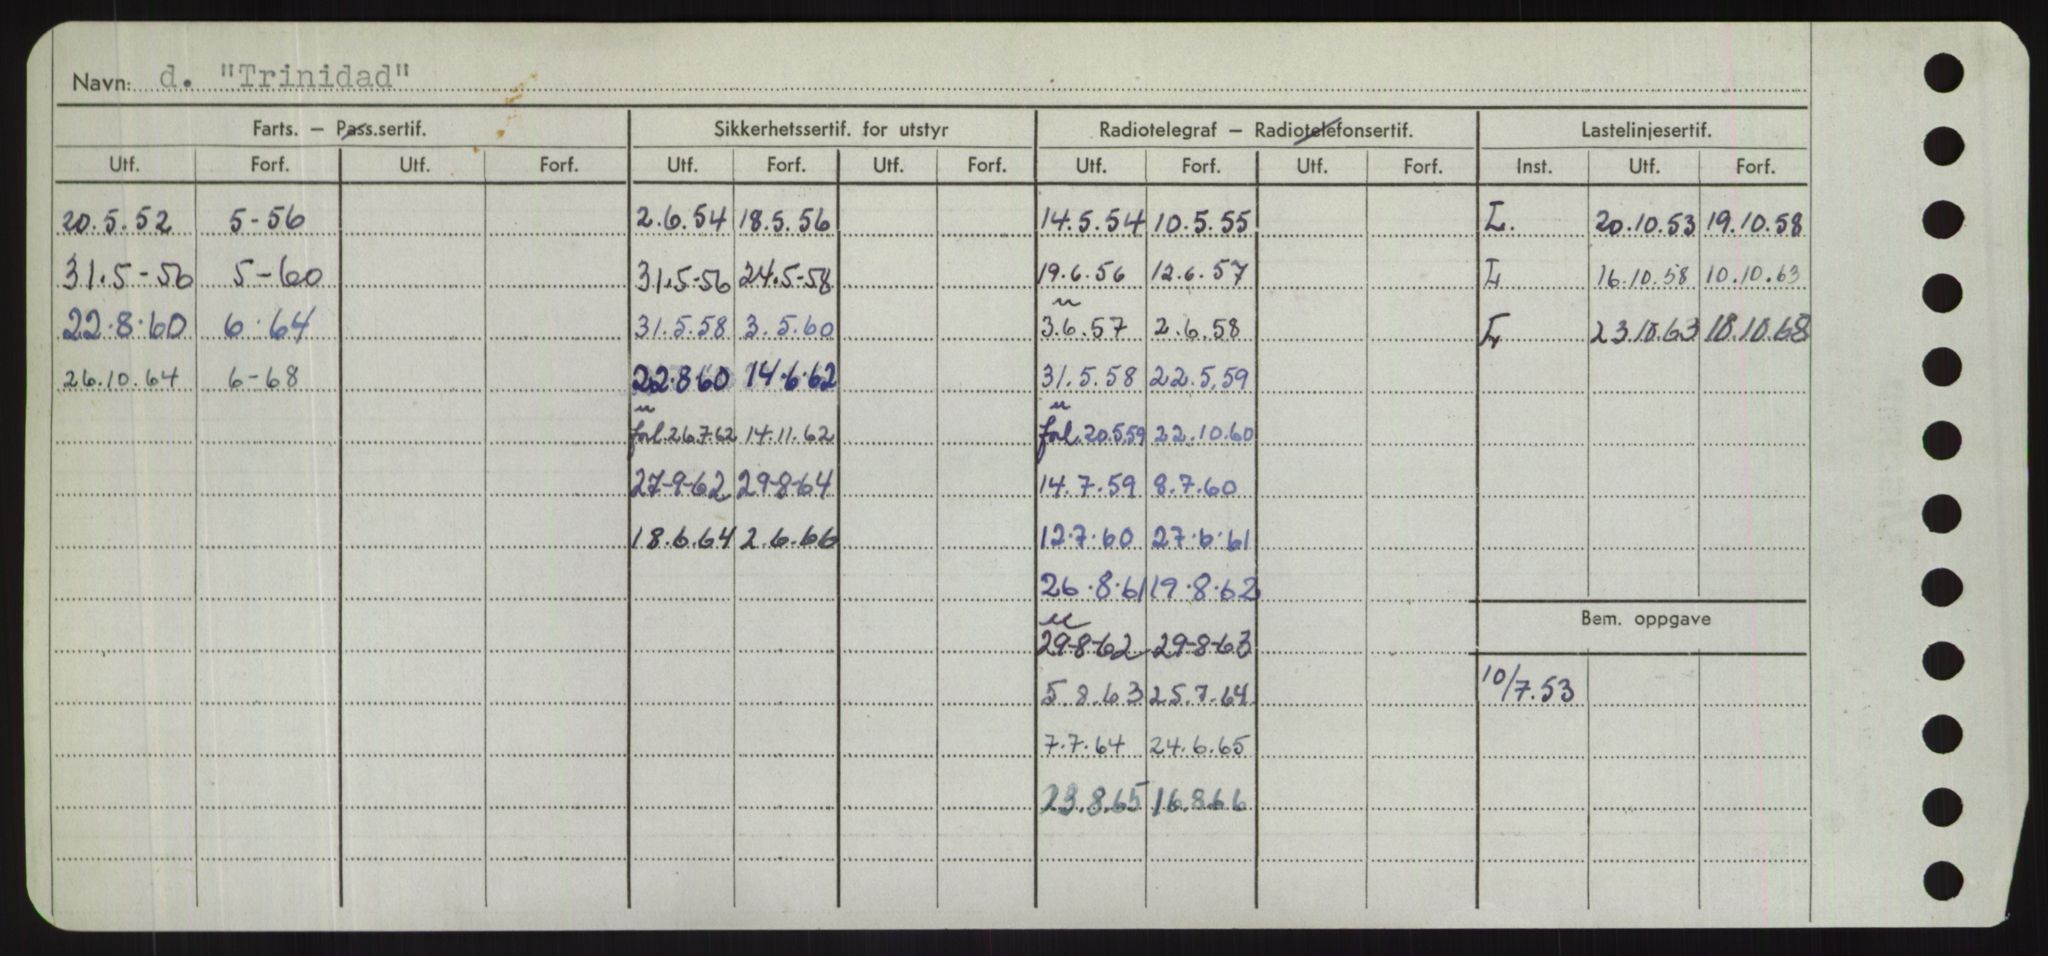 Navn: d. "Trinidad"
Farts. – Pass.sertif. Sikkerhetssertif. for utstyr Radiotelegraf – Radiotelefonsertif. Lastelinjesertif.
Utf. Forf. Utf. Forf. Utf. Forf. Utf. Forf. Utf. Forf. Utf. Forf. Inst. Utf. Forf.
20.5.52 5-56 2.6.54 18.5.56 14.5.54 10.5.55 L. 20.10.53 19.10.58
31.5-56 5-60 31.5-56 24.5-58 19.6.56 12.6.57 L 16.10.58 10.10.63
22.8.60 6.64 31.5.58 3.5.60 3.6.57 2.6.58 L 23.10.63 18.10.68
26.10.64 6-68 22.8.60 14.6.62 31.5.58 22.5.59
forl. 26.7.62 14.11.62 forl. 20.5.59 22.10.60
27-9-62 29-8-64 14.7.59 8.7.60
18.6.64 2.6.66 12.7.60 27.6.61
26.8.61 19.8.62
Bem. oppgave
29-8-62 29-8-63
5.8.63 25.7.64 10/7.53
7.7.64 24.6.65
23.8.65 16.8.66